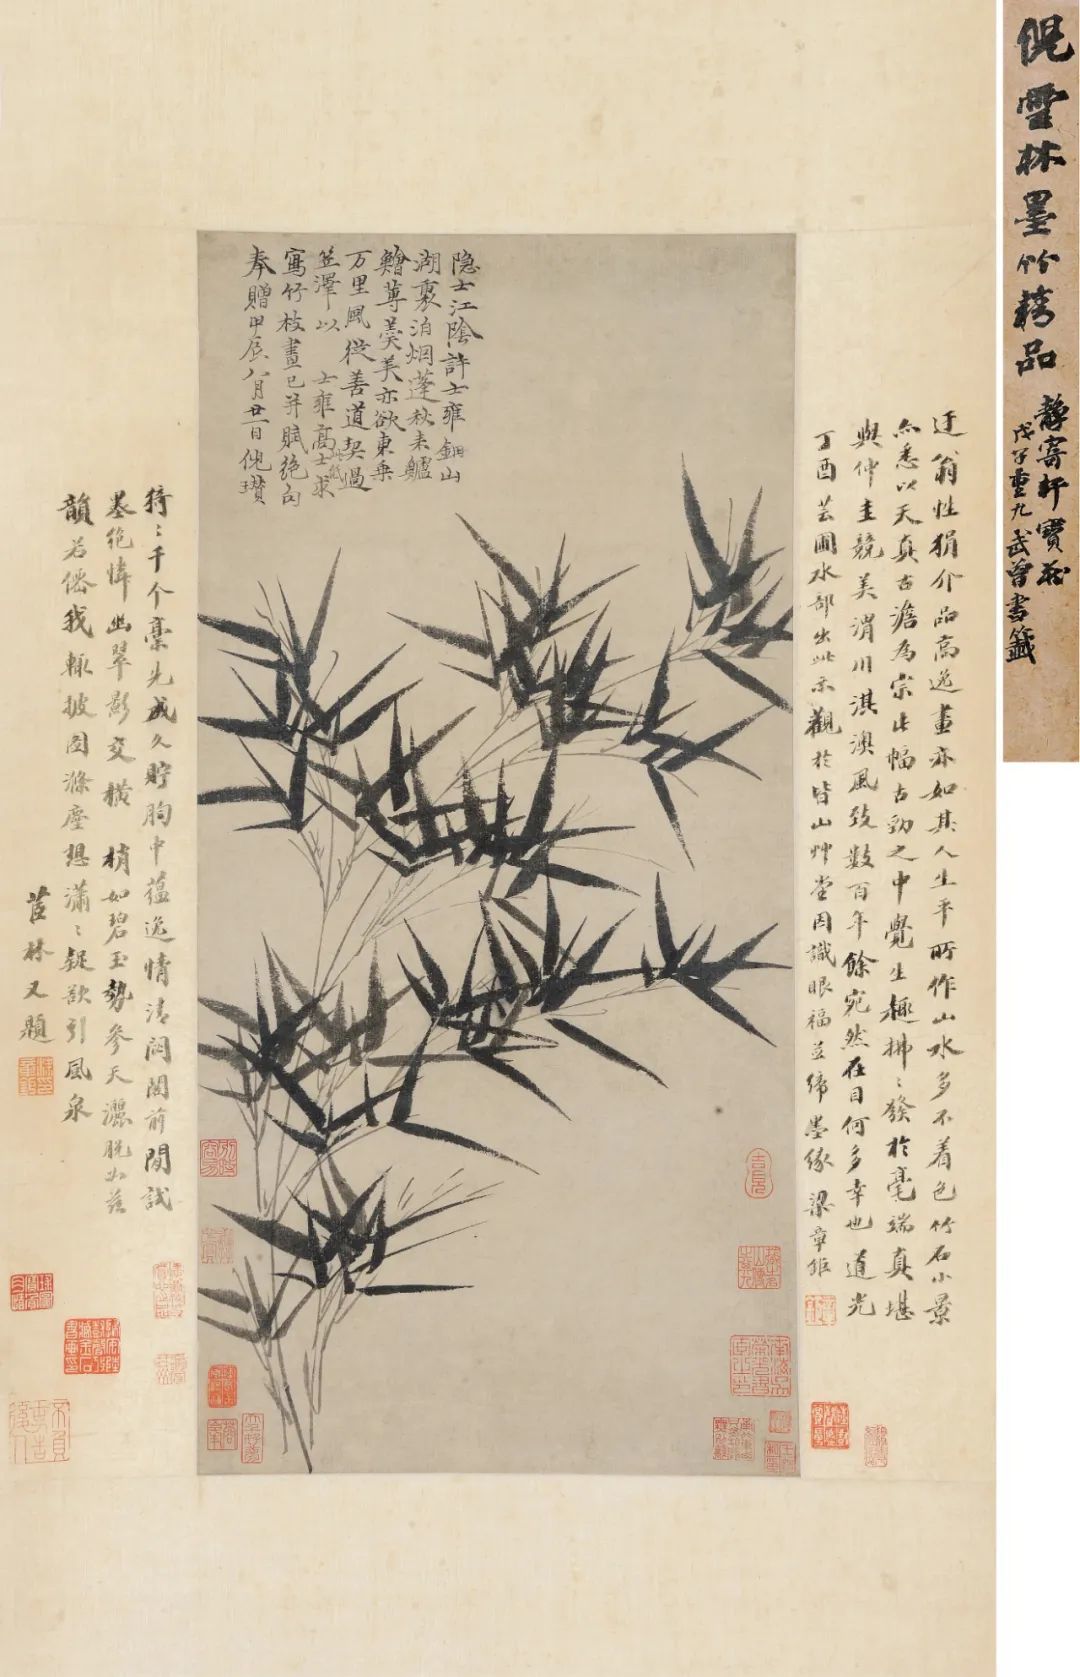 倪雲林墨竹精品
靜寄軒寶藏
戊子重九武曾書籤
隐士江陰許士雍鉏山
湖裏泊烟蓬秋末鱸
鱠蓴羹美亦欲東乗
万里風從善道契過
笠澤以 士雍高士求
寫竹枝畫已并賦絶句
奉贈甲辰八月廿一日倪瓚
迂翁性狷介品高逸畫亦如其人生平所作山水多不着色竹石小景
亦悉以天真古澹為宗此幅古勁之中覺生趣拂〻發於毫端真堪
與仲圭競美渭川淇澳風致數百年餘宛然在目何多幸也道光
丁酉芸圃水部出此示觀於皆山艸堂因識眼福並締墨緣 梁章鉅
猗〻千个稾先成久貯胸中蘊逸情清閟閣前閒試
墨絶憐幽翠影交橫 梢如碧玉勢參天灑脱如茲
韻若僊我輒披圖滌塵想瀟〻疑欲引風泉
茝林又題